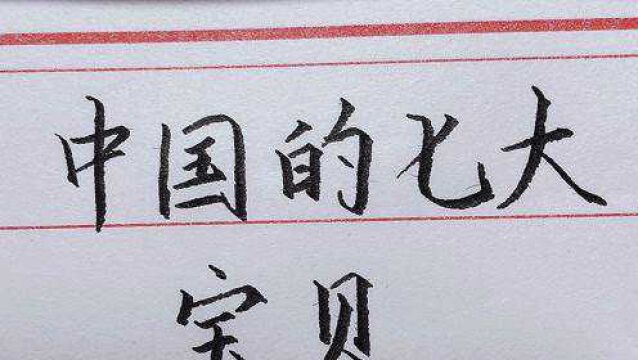 中国的七大
宝贝